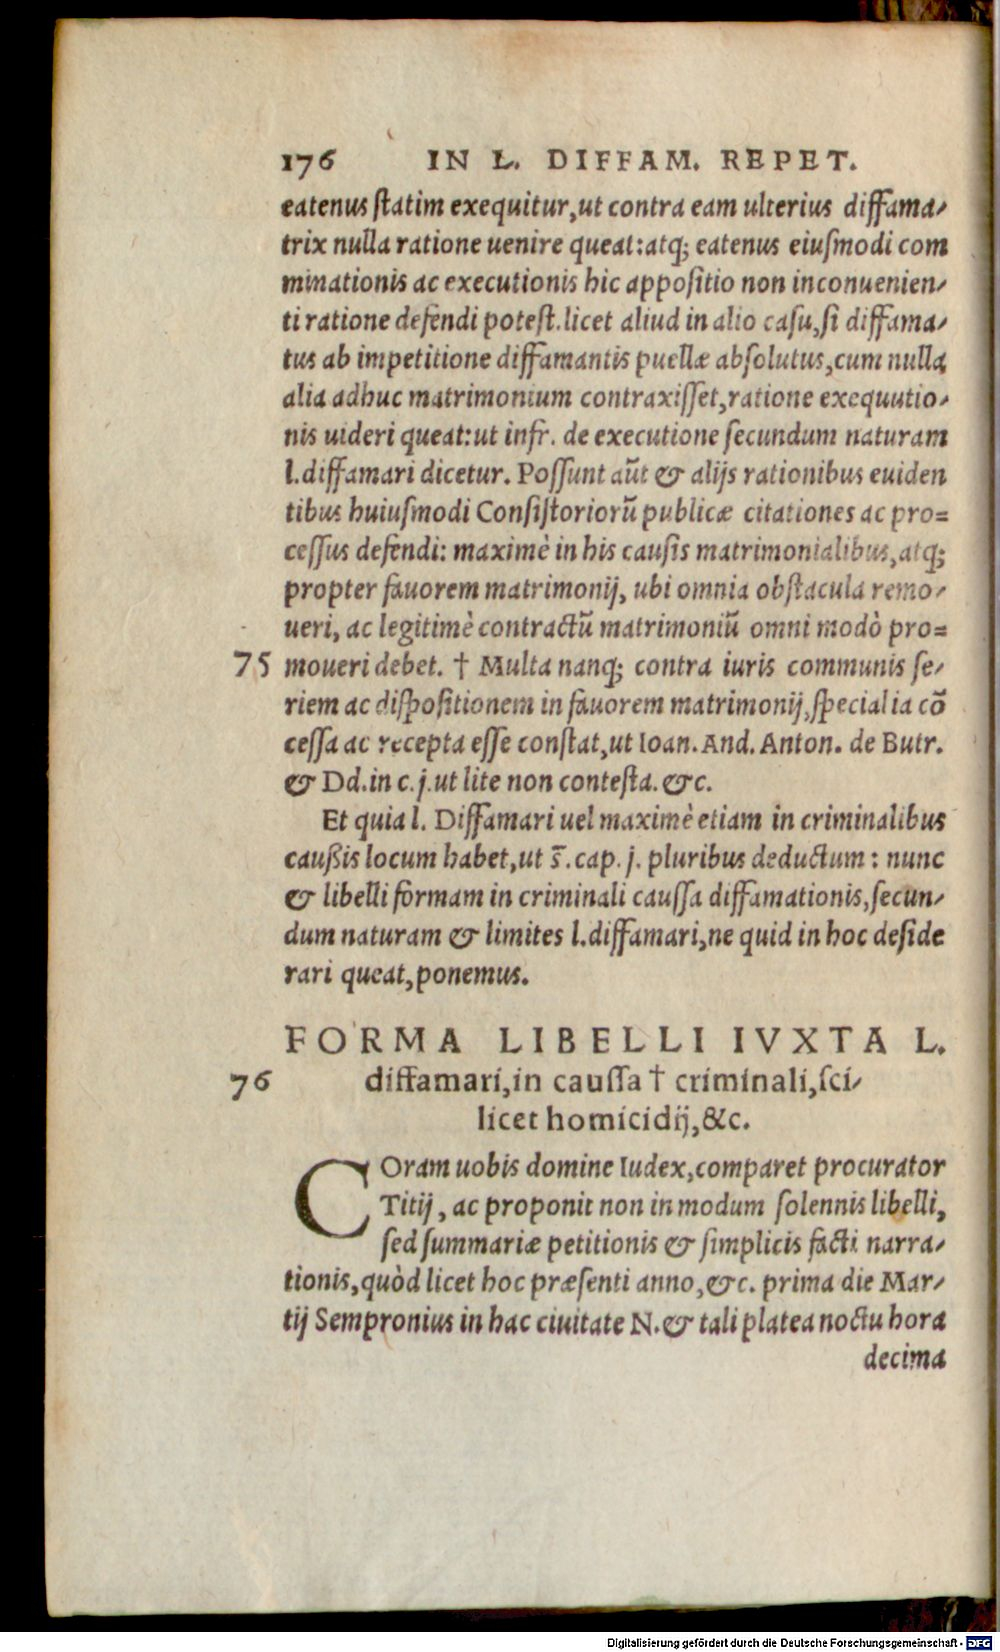 176 IN L. DIFFAM. REPET.
eatenus ſtatim exequitur, ut contra eam ulterius diffama-
trix nulla ratione uenire queat: atq; eatenus eiuſmodi com
minationis ac executionis hic appoſitio non inconuenien-
ti ratione defendi poteſt. licet aliud in alio caſu, ſi diffama-
tus ab impetitione diffamantis puellæ abſolutus, cum nulla
alia adhuc matrimonium contraxiſſet, ratione exequutio-
nis uideri queat: ut infr. de executione ſecundum naturam
l. diffamari dicetur. Poſſunt aũt & alijs rationibus euiden
tibus huiuſmodi Conſiſtoriorũ publicæ citationes ac pro=
ceſſus defendi: maximè in his cauſis matrimonialibus, atq;
propter fauorem matrimonij, ubi omnia obſtacula remo-
ueri, ac legitimè contractũ matrimoniũ omni modò pro=
75 moueri debet. † Multa nanq; contra iuris communis ſe-
riem ac diſpoſitionem in fauorem matrimonij, ſpecialia cõ
ceſſa ac recepta eſſe conſtat, ut Ioan. And. Anton. de Butr.
& Dd. in c. j. ut lite non conteſta. &c.
Et quia l. Diffamari uel maximè etiam in criminalibus
caußis locum habet, ut s̄. cap. j. pluribus deductum: nunc
& libelli formam in criminali cauſſa diffamationis, ſecun-
dum naturam & limites l. diffamari, ne quid in hoc deſide
rari queat, ponemus.
FORMA LIBELLI IVXTA L.
76 diffamari, in cauſſa † criminali, ſci-
licet homicidij, &c.
COram uobis domine Iudex, comparet procurator
Titij, ac proponit non in modum ſolennis libelli,
ſed ſummariæ petitionis & ſimplicis facti narra-
tionis, quòd licet hoc præſenti anno, &c. prima die Mar-
tij Sempronius in hac ciuitate N. & tali platea noctu hora
decima
Digitalisierung gefördert durch die Deutsche Forschungsgemeinschaft - DFG